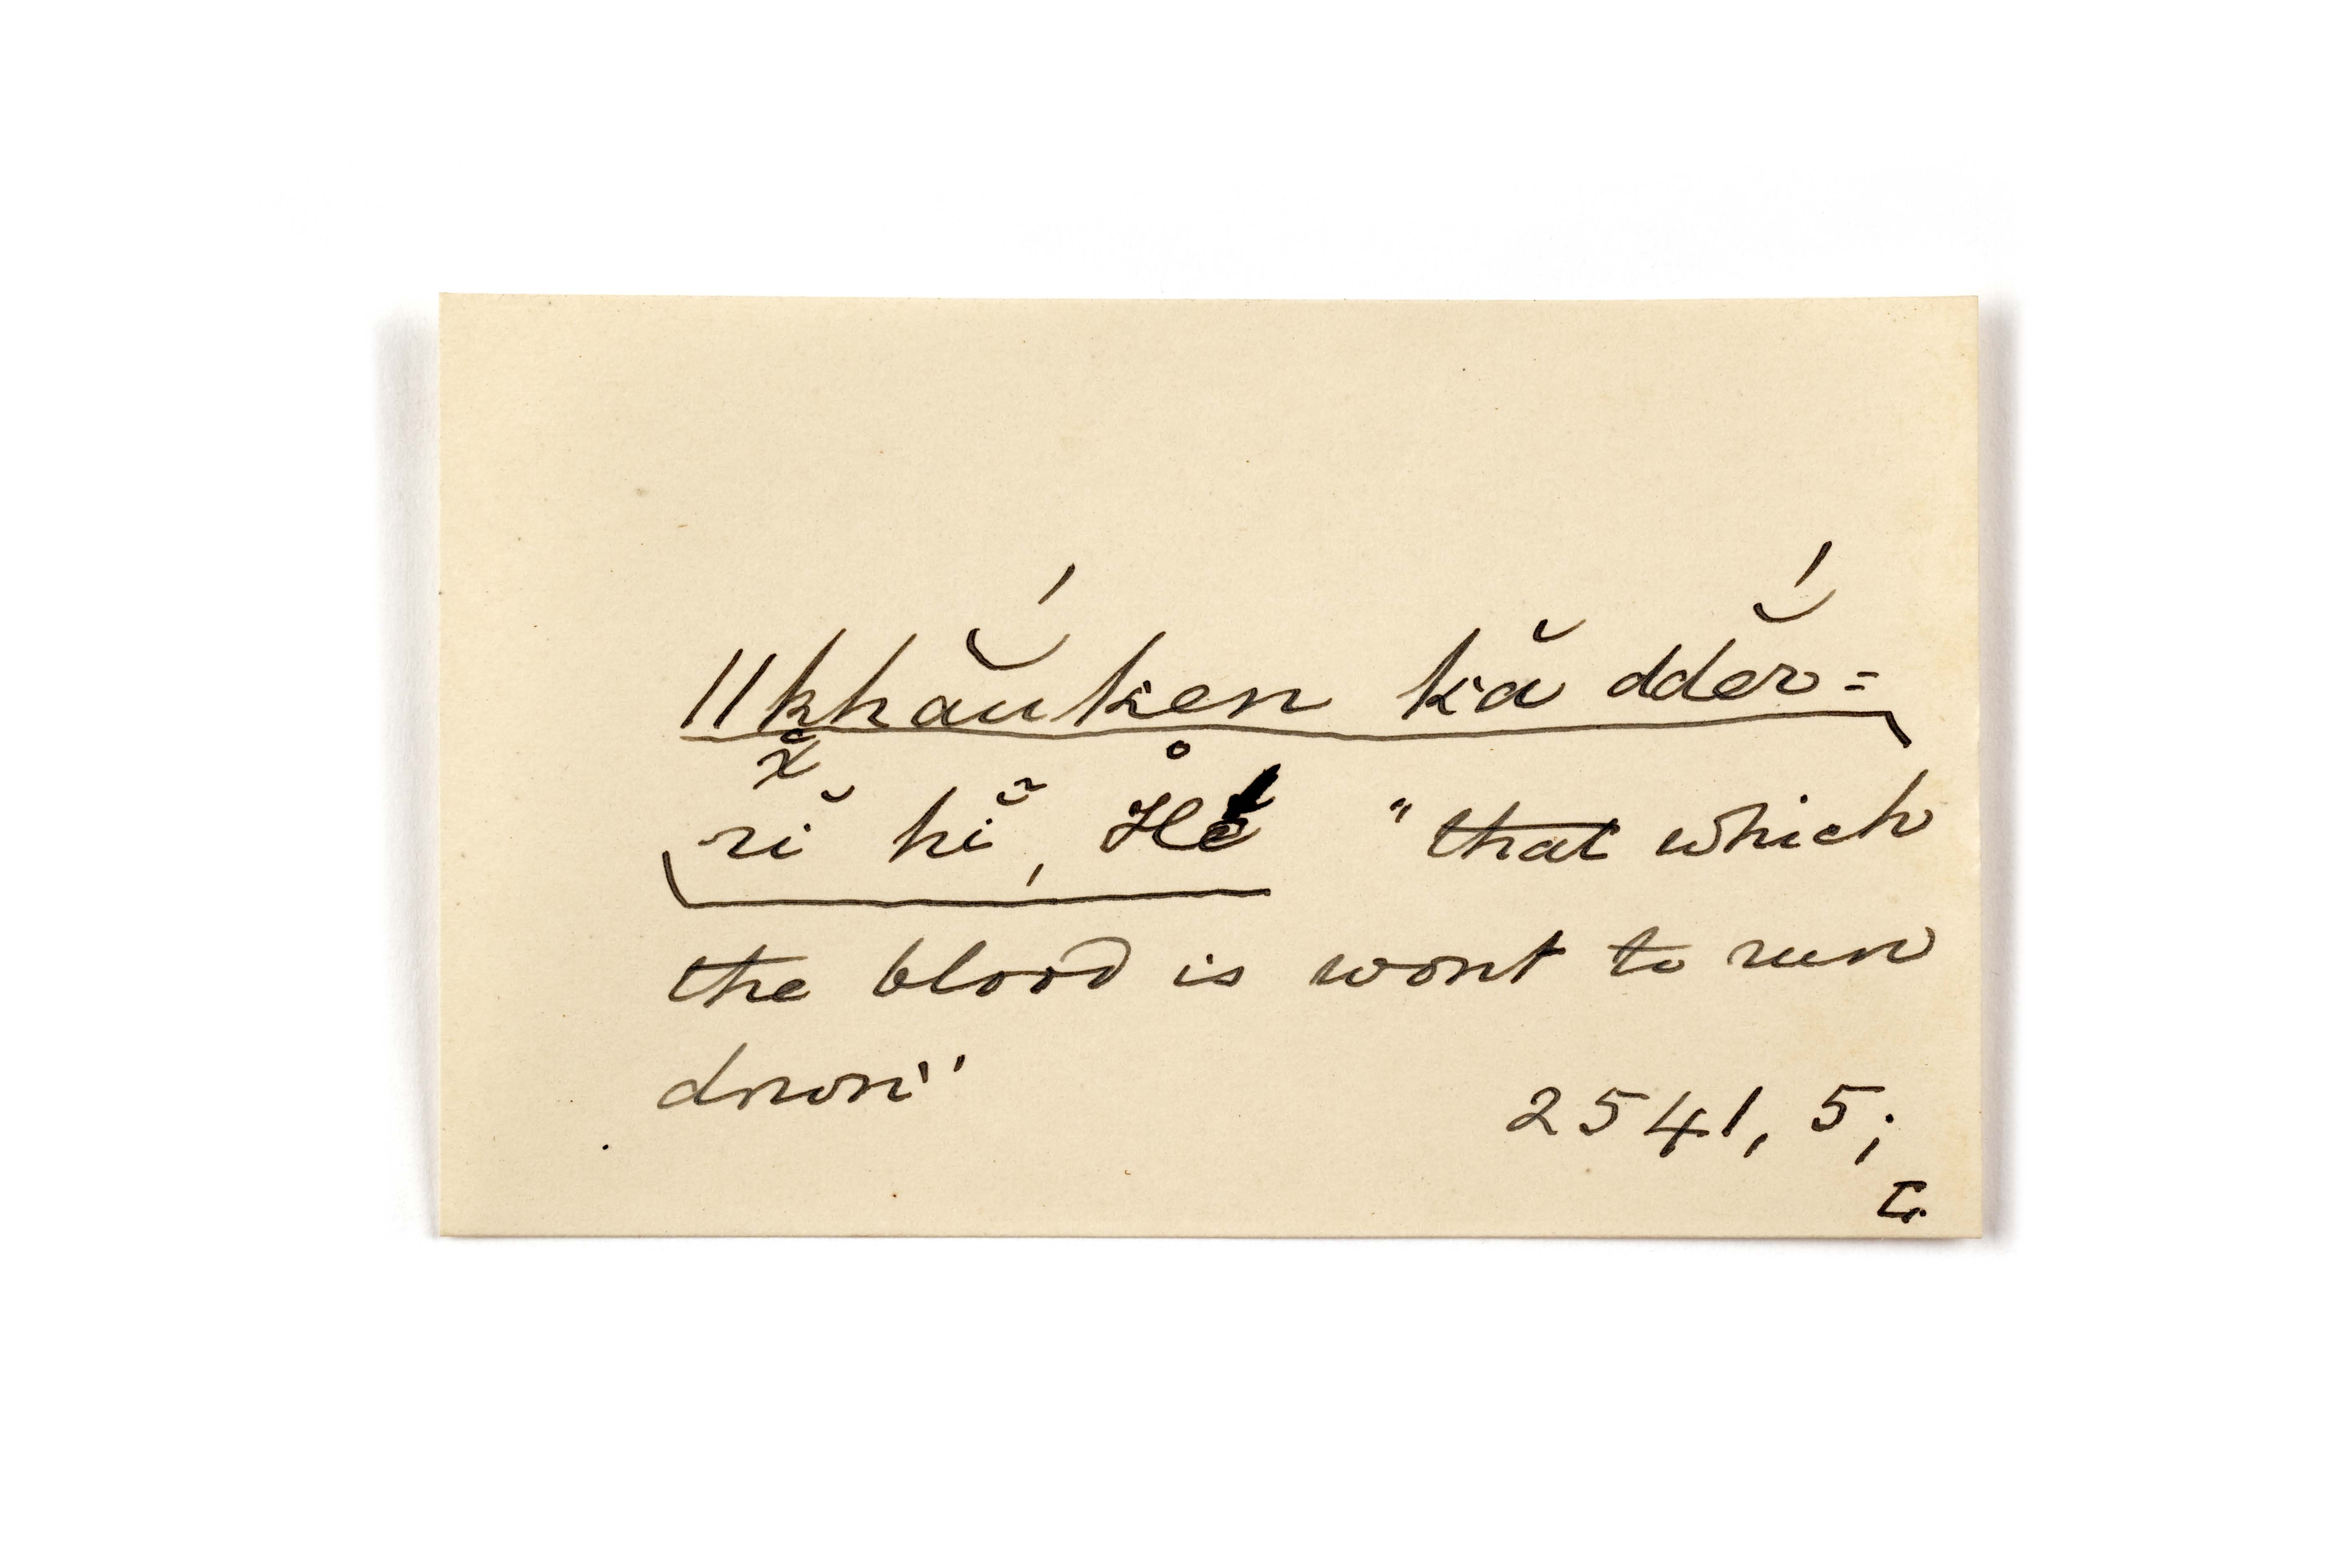 ǁkhắuken kă ddĕ́r=
rĭ hĭ̃, Hé̤ "that which
the blood is wont to run
down"
2541, 5;
C.